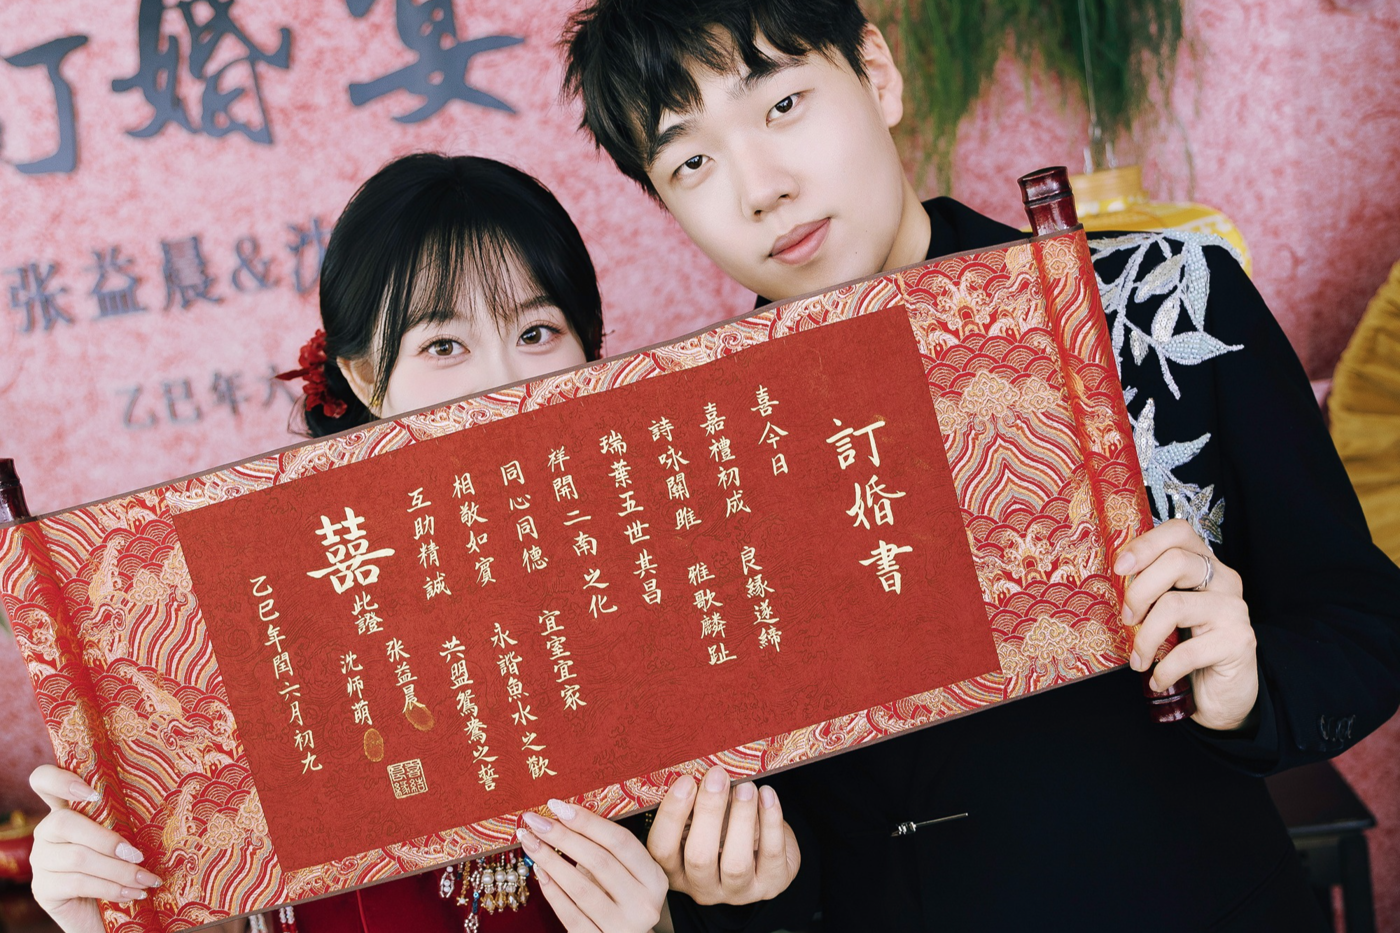 订婚宴
张益晨&沈
乙巳年六
訂婚書
喜今日
嘉禮初成 良緣遂締
詩咏關雎 雅歌麟趾
瑞葉五世其昌
祥開二南之化
同心同德 宜室宜家
相敬如賓 永諧魚水之歡
互助精誠 共盟鴛鴦之誓
囍
此證
张益晨
沈师萌
乙巳年閏六月初九